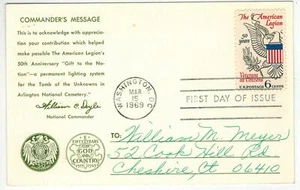 COMMANDER'S MESSAGE
This is to acknowledge with appreciation your contribution which helped make possible The American Legion's 50th Anniversary "Gift to the Nation"—a permanent lighting system for the Tomb of the Unknowns in Arlington National Cemetery.
William C. Doyle
National Commander
FOR GOD AND COUNTRY
WASHINGTON, D.C.
MAR
15
1969
FIRST DAY OF ISSUE
The American Legion
50 years
Veterans as Citizens
U.S. POSTAGE 6 CENTS
TO:
William M. Meyer
52 Cook Hill Rd
Cheshire, Ct 06410